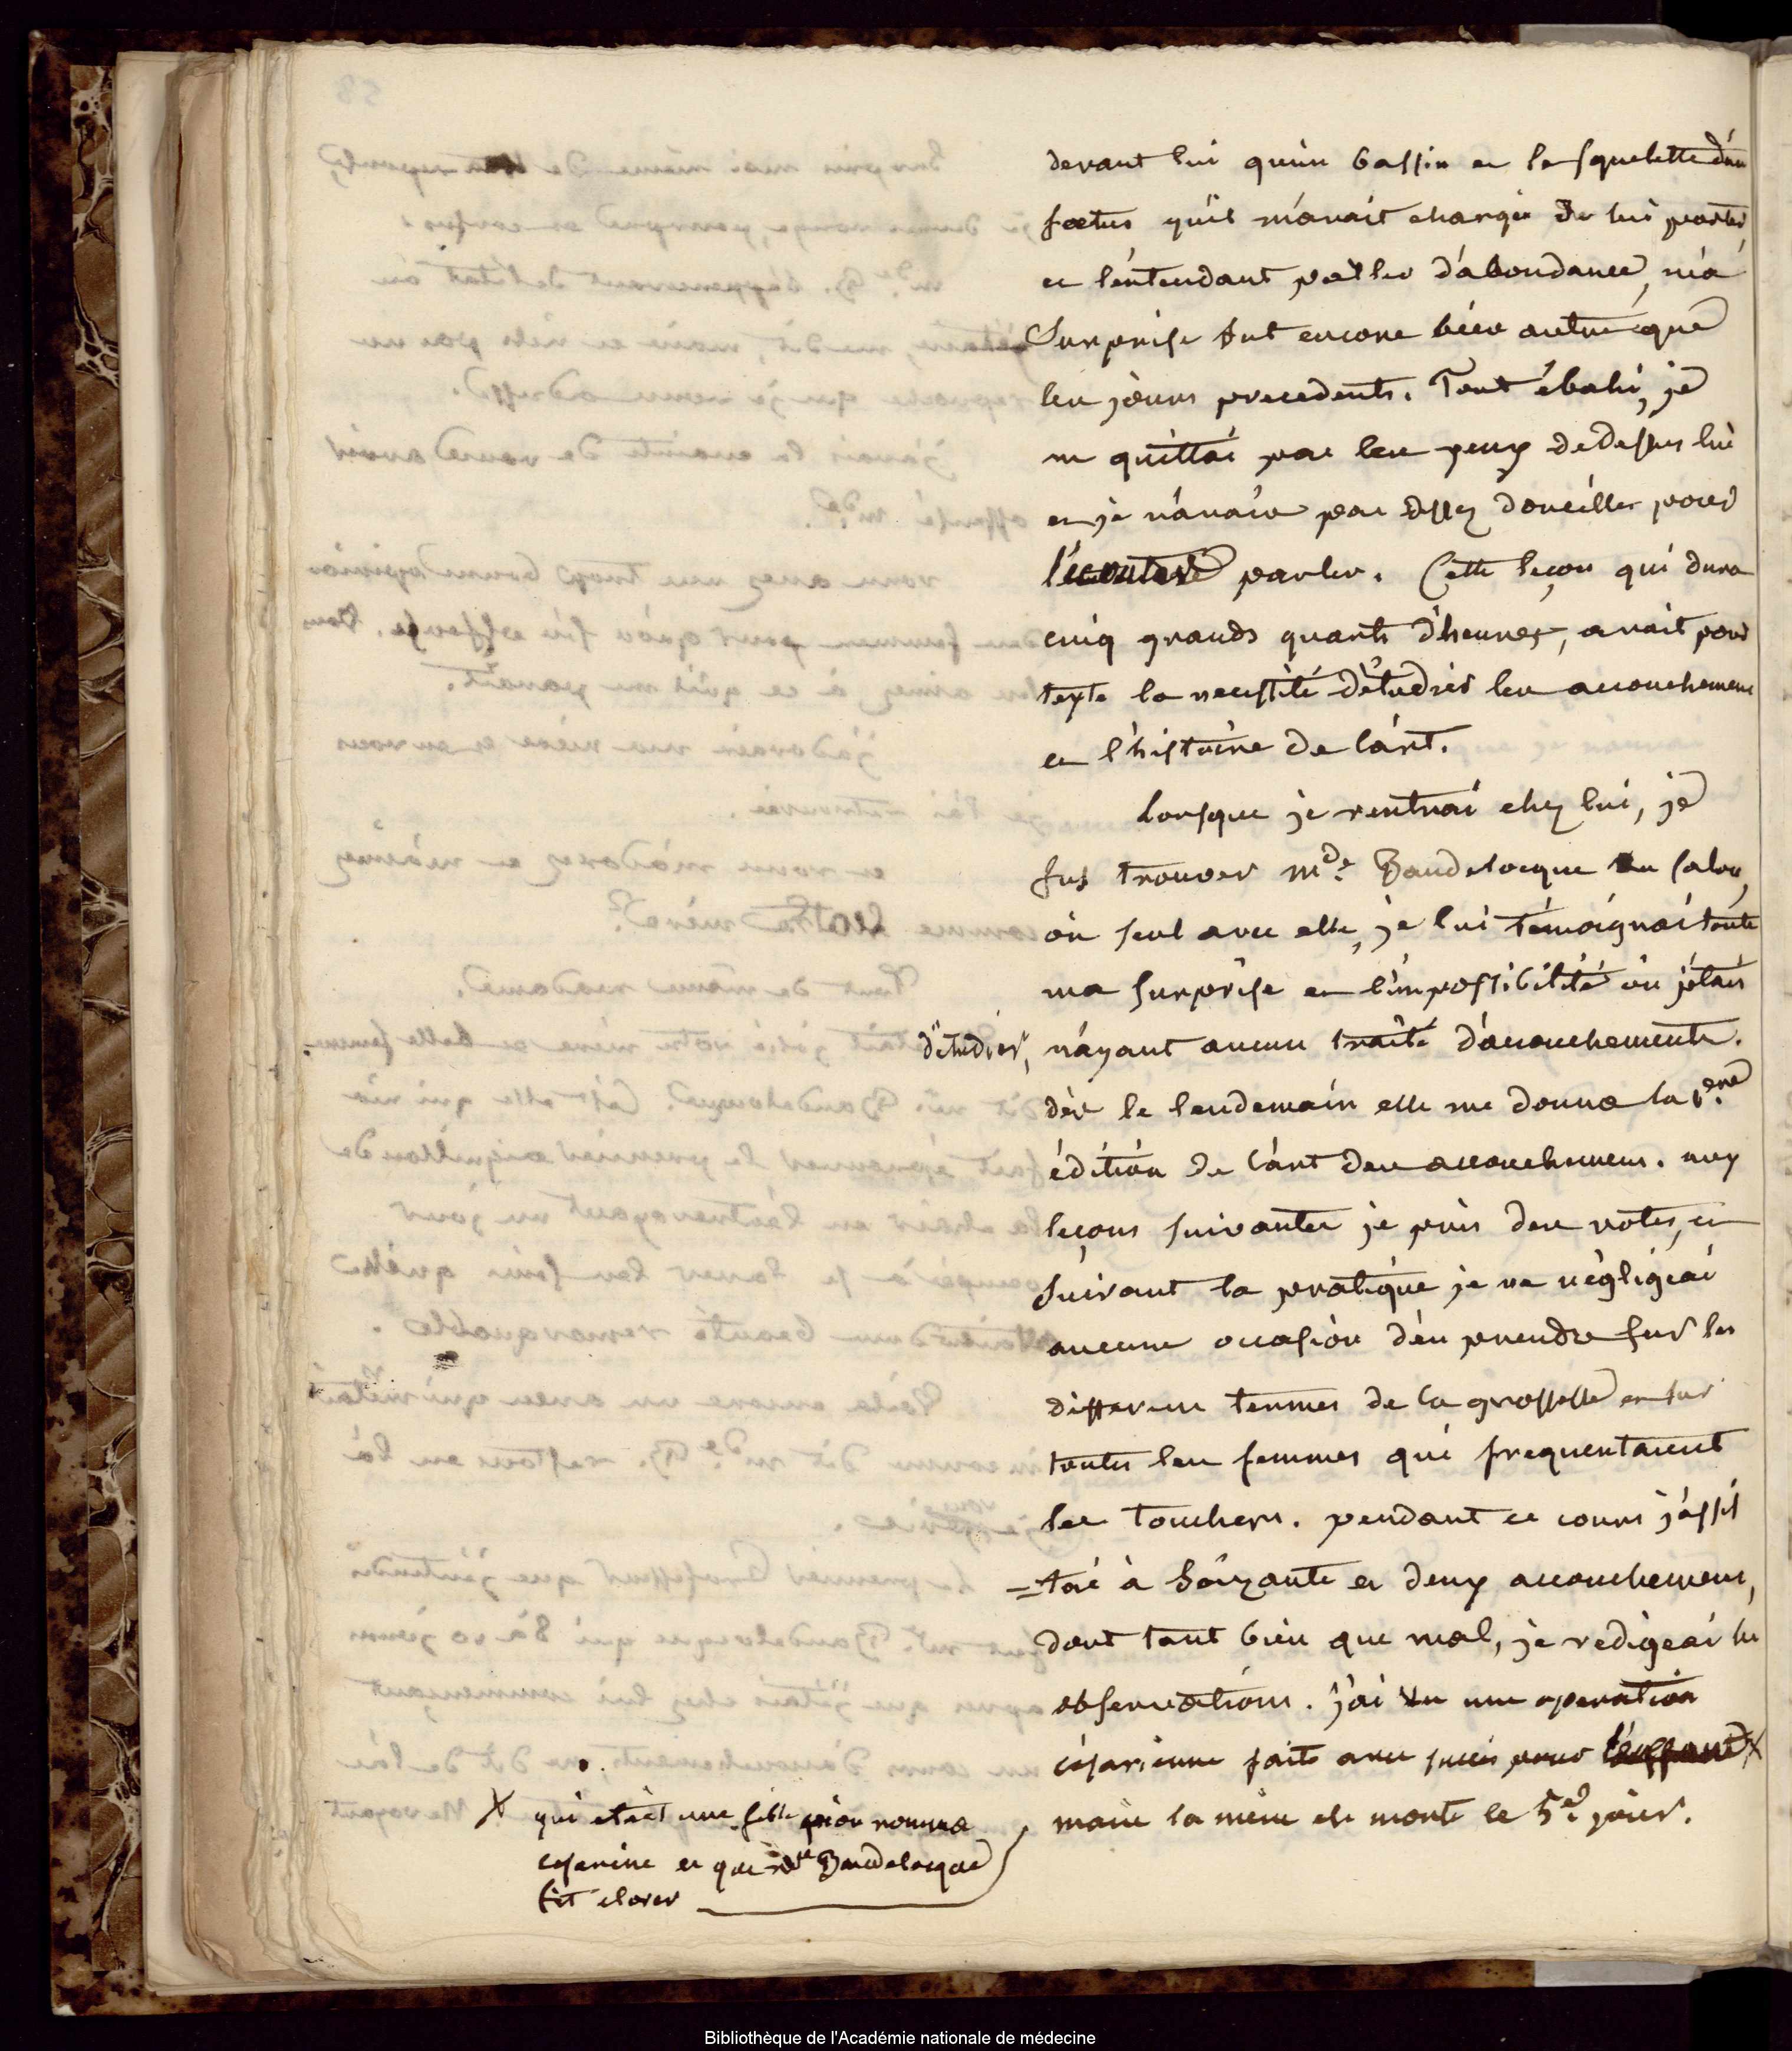 devant lui qu'un bassin et le squelette d'un
foetus qu'il m'avait chargé de lui porter,
et l'entendant parler d'abondance, ma
surprise fut encore bien autre que
les jours precedents. Tout ébahi, je
ne quittai pas les yeux de dessus lui
et je n'avais pas assez d'oreilles pour
l'écouter parler. Cette leçon qui dura
cinq grands quarts d'heures, avait pour
texte la necessité d'étudier les accouchemens
et l'histoire de l'art.
Lorsque je rentrai chez lui, je
fus trouver mde. Baudelocque au salon,
où seul avec elle, je lui témoignai toute
ma surprise et l'impossibilité où j'étais
d'étudier, n'ayant aucun traité d'accouchements.
dès le lendemain elle me donna la 1ere
édition de l'art des accouchemens. aux
leçons suivantes je pris des notes, et
suivant la pratique je ne négligeai
aucune occasion d'en prendre sur les
differens termes de la grossesse et sur
toutes les femmes qui frequentaient
les touchers. pendant ce cours j'assis
=tai à soixante et deux accouchemens,
dont tant bien que mal, je redigeai les
observations. j'ai vu une operation
césarienne faite avec succès pour l'enfant X
mais la mère est morte le 5e jour.
X qui etait une fille qu'on nomma
cesarine et que mr Baudelocque
fit elever
Bibliothèque de l'Académie nationale de médecine